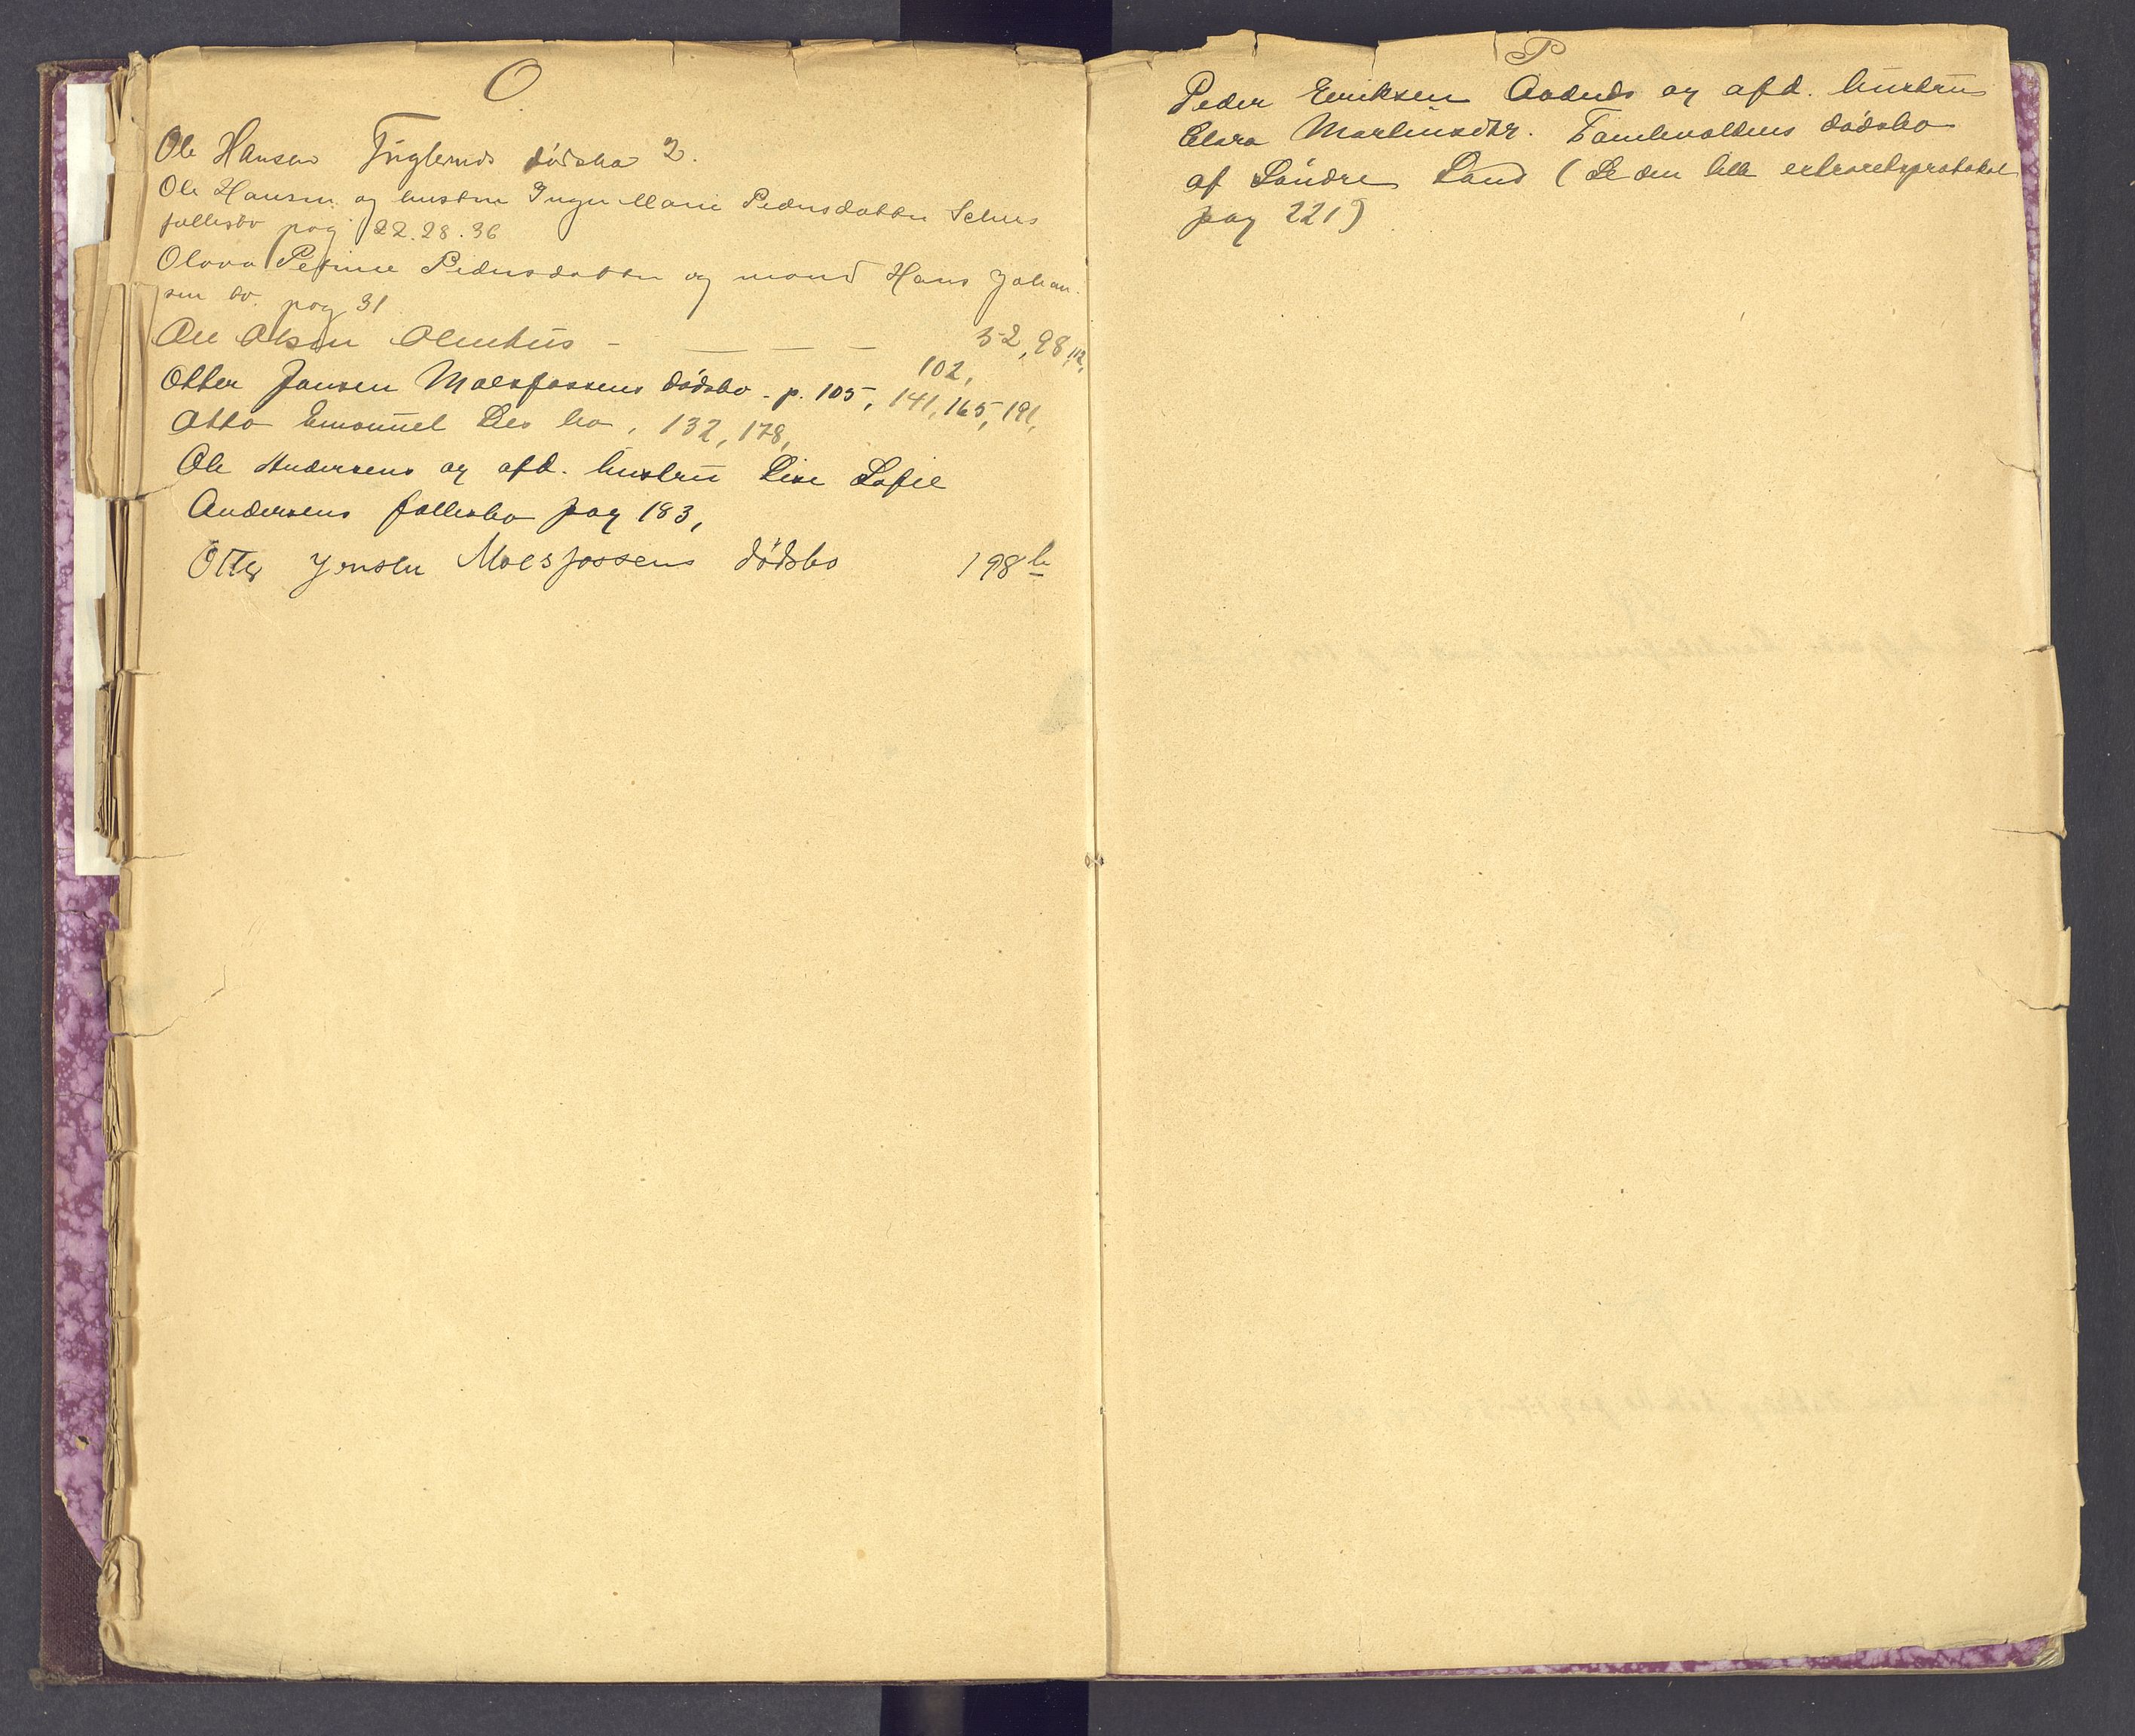 O
Ole Hansen Fuglerud dødsbo 2.
Ole Hansen og hustru Inger Marie Pedersdatter
fællesbo pag 22.28.36
Olava Petrine Pedersdatter og mand Hans Johan-
sen bo. pag 31
Ole Olsen Olmhus - — — — 52, 98, 112,
102,
Otter Jansen Moesfossens dødsbo. p. 105, 141, 165, 191,
Otto Emanuel Lies bo, 132, 178,
Ole Andersens og afd. hustru Lise Sofie
Andersens fællesbo pag 183,
Otter Jensen Moesfossens dödsbo 198 b
P
Peder Eriksen og afd. hustru
Clara Martinsdtr. dødsbo
af Søndre Land (Se den lille extraretsprotokol
pag 221)